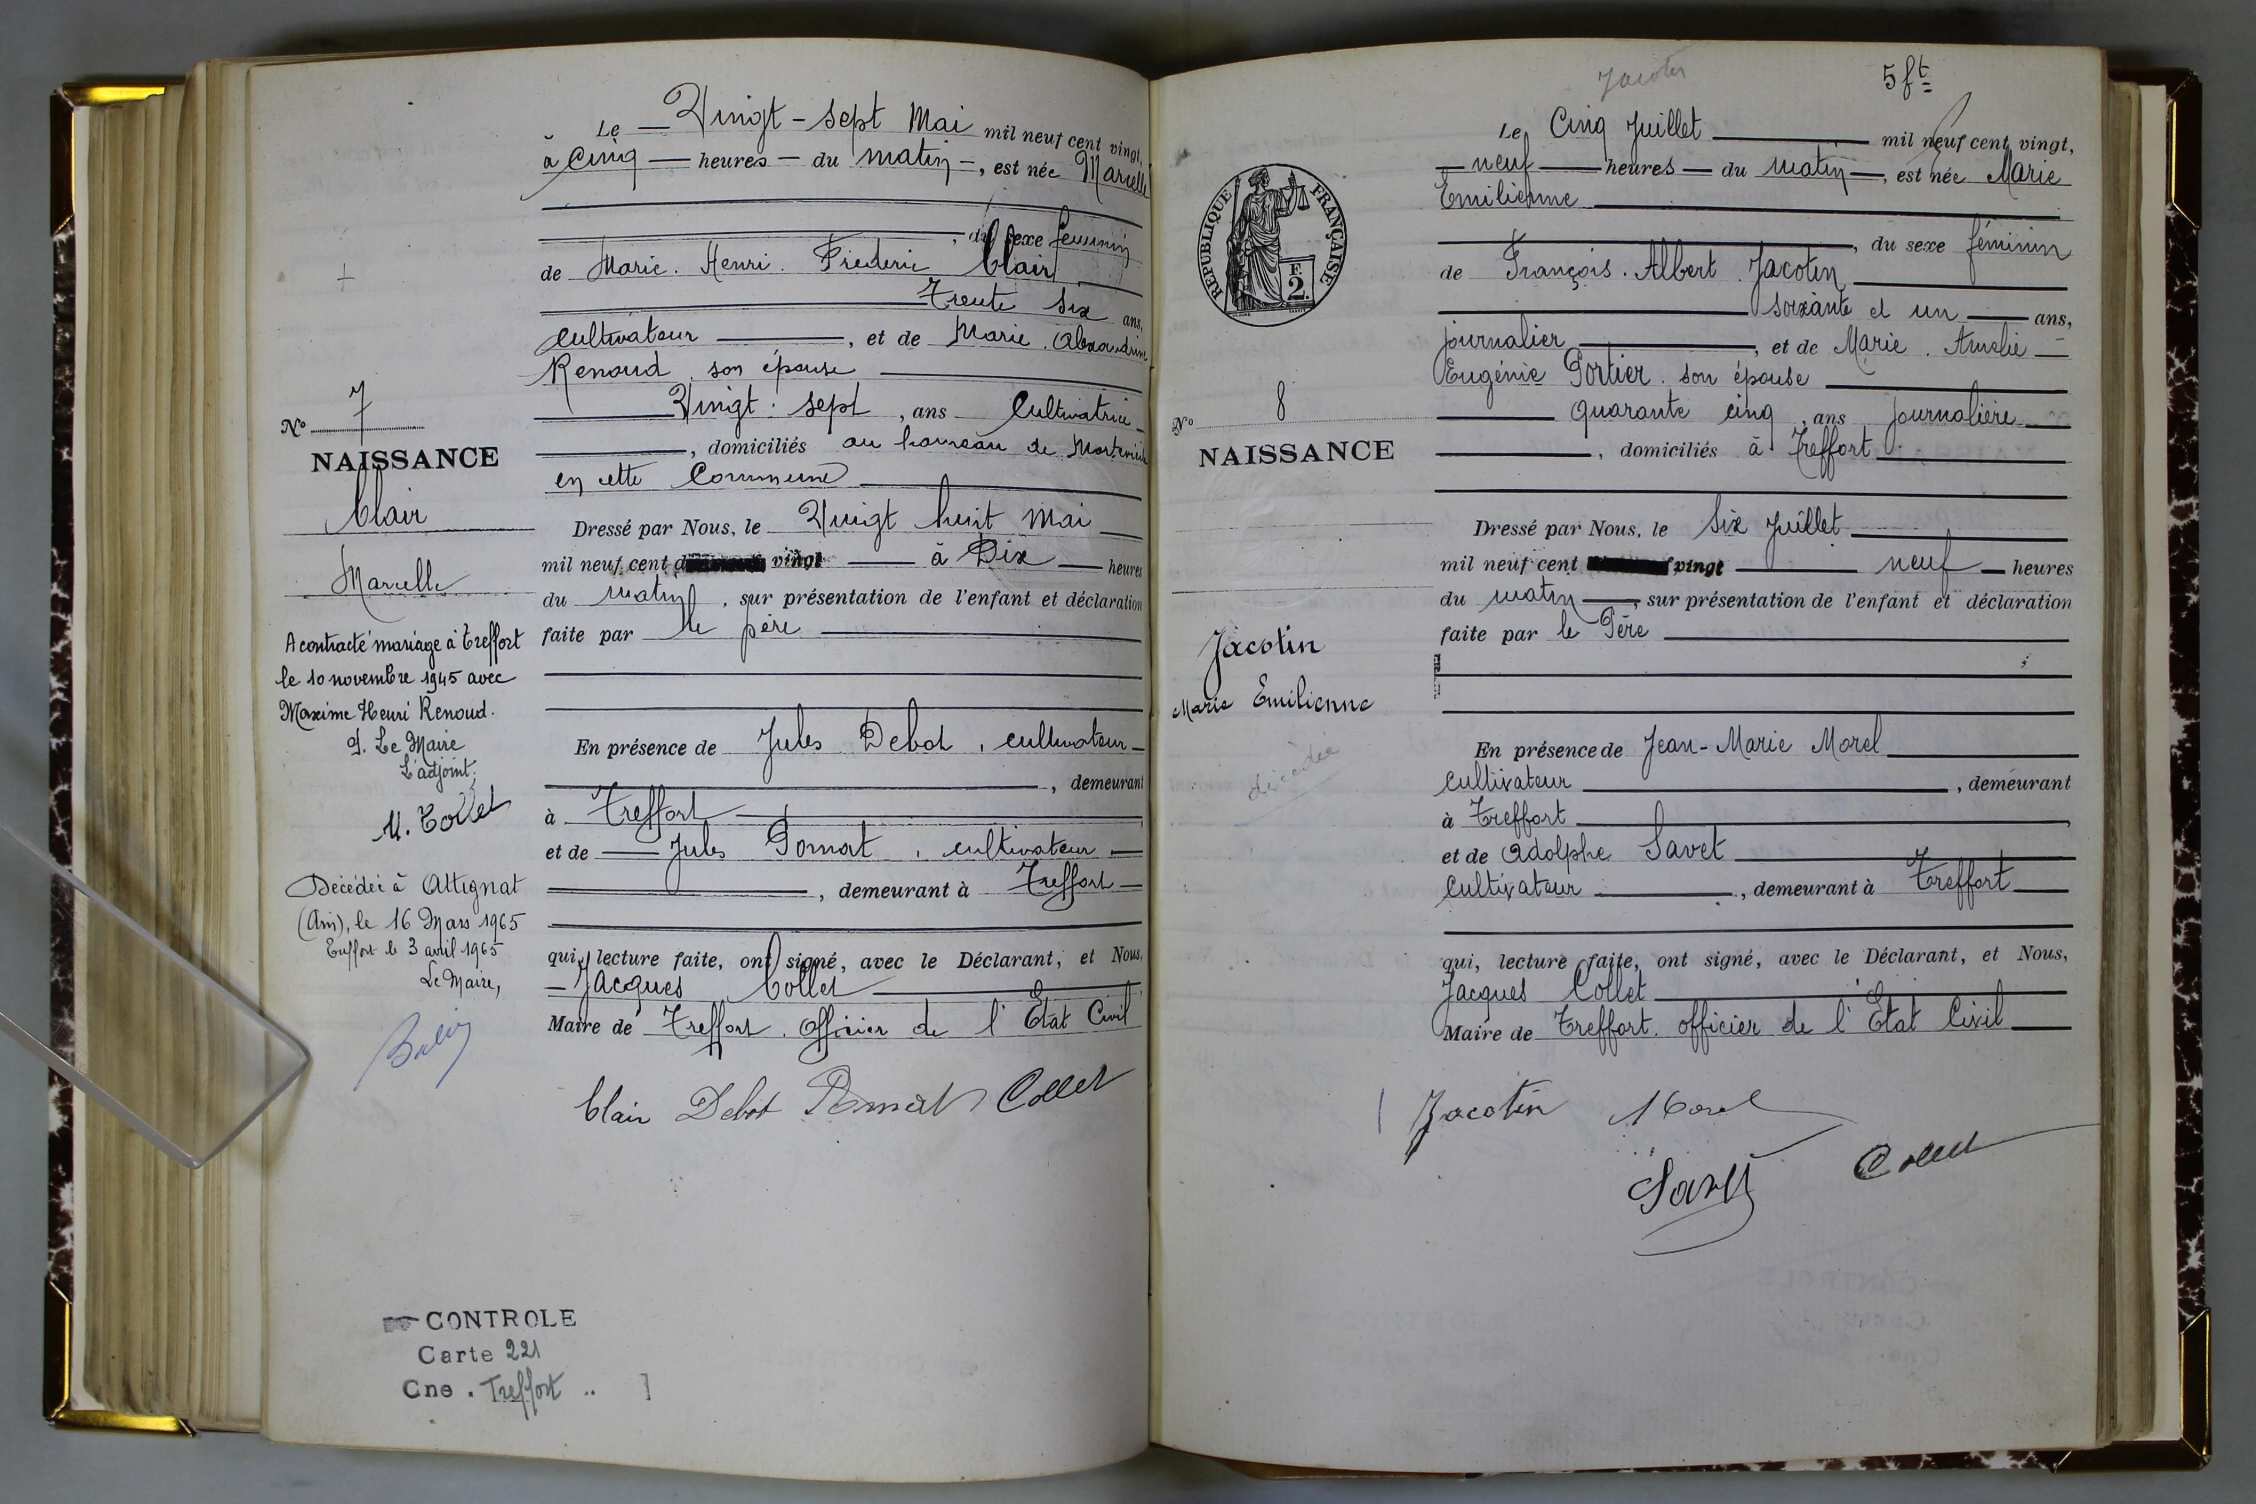 Le Vingt-sept Mai mil neuf cent vingt,
à Cinq heures du matin, est née Marcelle
, du sexe féminin
de Marie. Henri. Frederic Clair
Trente six ans,
cultivateur, et de Marie. Alexandrine
Renoud son épouse
Vingt: sept, ans Cultivatrice
, domiciliés au hameau de
en cette Commune
Dressé par Nous, le Vingt huit Mai
mil neuf cent vingt à Dix heures
du matin, sur présentation de l'enfant et déclaration
faite par le père
En présence de Jules Debot, cultivateur
, demeurant
à Treffort
et de Jules Pomat, cultivateur
, demeurant à Treffort
qui, lecture faite, ont signé, avec le Déclarant, et Nous,
Jacques Collet
Maire de Treffort. Officier de l'État Civil
Clair Debot Pomat Collet
No 7
NAISSANCE
Clair
Marcelle
A contracté mariage à Treffort
le 10 novembre 1945 avec
Maxime Henri Renoud.
P. Le Maire
L'adjoint,
Décédée à Attignat
(Ain), le 16 Mars 1965
Treffort le 3 avril 1965
Le Maire,
CONTROLE
Carte 221
Cne. Treffort
Jacotin
5 ft
Le Cinq Juillet mil neuf cent vingt,
neuf heures du matin, est née Marie
Emilienne
, du sexe féminin
de François. Albert. Jacotin
soixante et un ans,
journalier, et de Marie. Amélie
Eugénie Portier. son épouse
quarante cinq, ans journalière
, domiciliés à Treffort
Dressé par Nous, le Six Juillet
mil neuf cent vingt neuf heures
du matin, sur présentation de l'enfant et déclaration
faite par le Père
En présence de Jean-Marie Morel
cultivateur, demeurant
à Treffort
et de Adolphe Savet
cultivateur, demeurant à Treffort
qui, lecture faite, ont signé, avec le Déclarant, et Nous,
Jacques Collet
Maire de Treffort. officier de l'État Civil
Jacotin Morel
Savet Collet
RÉPUBLIQUE FRANÇAISE
F.
2.
No 8
NAISSANCE
Jacotin
Marie Emilienne
décédée